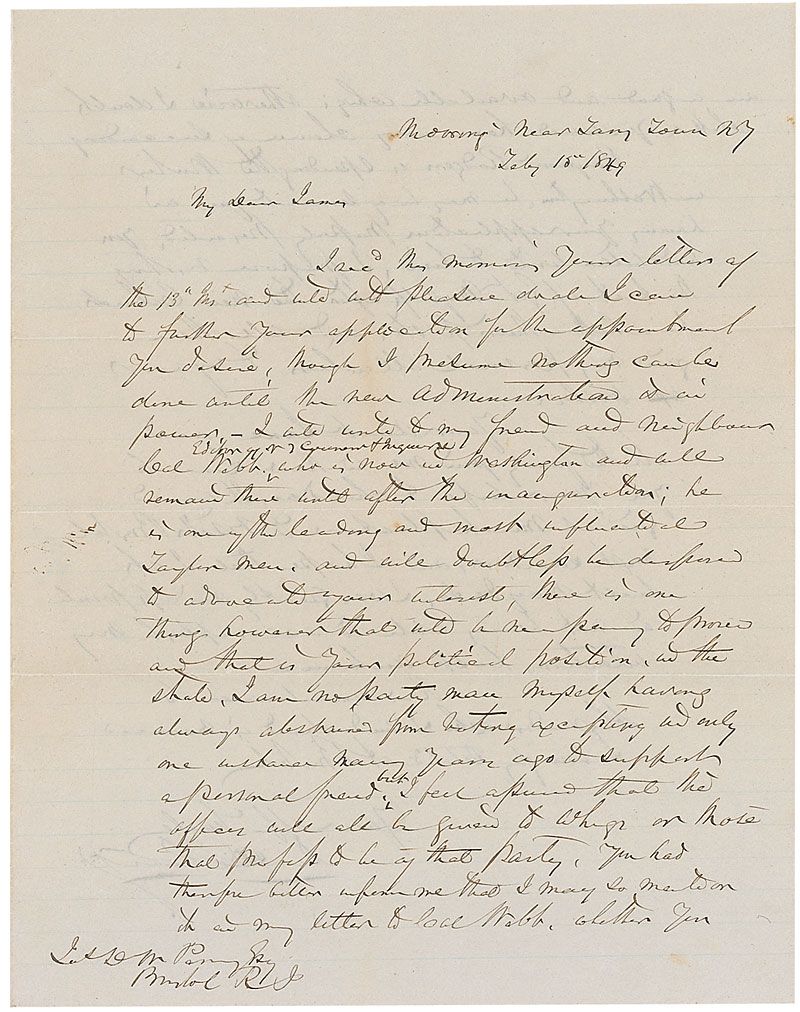 "Moorings" Near Tarry Town NY
Feby 15th 1849
My Dear James
I recd this morning your letter of
the 13th Inst and will with pleasure do all I can
to further your application for the appointment
you desire, though I presume nothing can be
done until the new Administration is in
power. – I will write to my friend and neighbour
Editor of N Y Courier & Enquirer
Col Webb, who is now in Washington and will
remain there until after the inauguration; he
is one of the leading and most influential
Taylor men. and will doubtless be disposed
to advocate your interest, there is one
thing however that will be necessary to prove
and that is your political position, in the
state. I am no party man myself having
always abstained from voting excepting in only
one instance many years ago to support
a personal friend, but I feel assured that the
offices will all be given to Whigs or those
that profess to be of that party. You had
therefore better inform me that I may so mention
it in my letter to Col Webb, whether you
Jas De W Perry Esq
Bristol R I